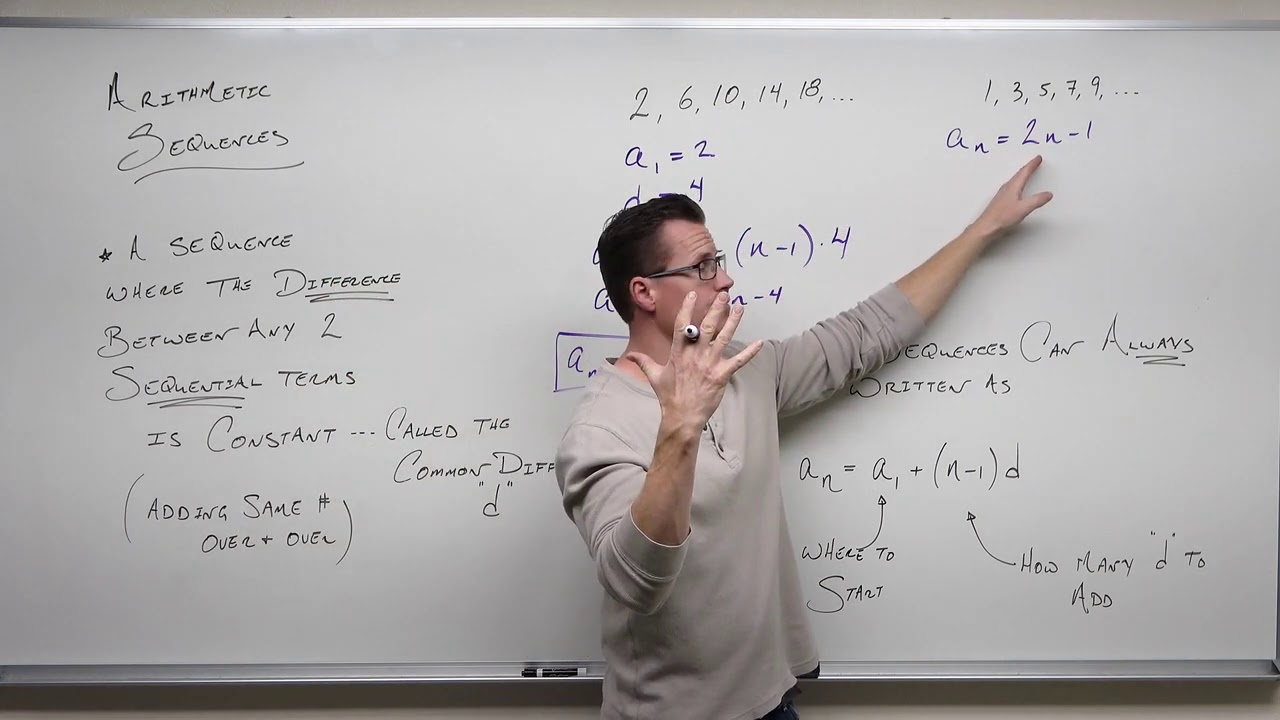 ARITHMETIC
SEQUENCES
* A SEQUENCE
WHERE THE DIFFERENCE
BETWEEN ANY 2
SEQUENTIAL TERMS
IS CONSTANT --- CALLED THE
COMMON DIFF
"d"
(ADDING SAME #
OVER + OVER)
2, 6, 10, 14, 18, ...
a₁ = 2
d = 4
(n-1)·4
n-4
aₙ
1, 3, 5, 7, 9, ...
aₙ = 2n-1
EQUENCES CAN ALWAYS
WRITTEN AS
aₙ = a₁ + (n-1)d
WHERE TO
START
HOW MANY "d" TO
ADD